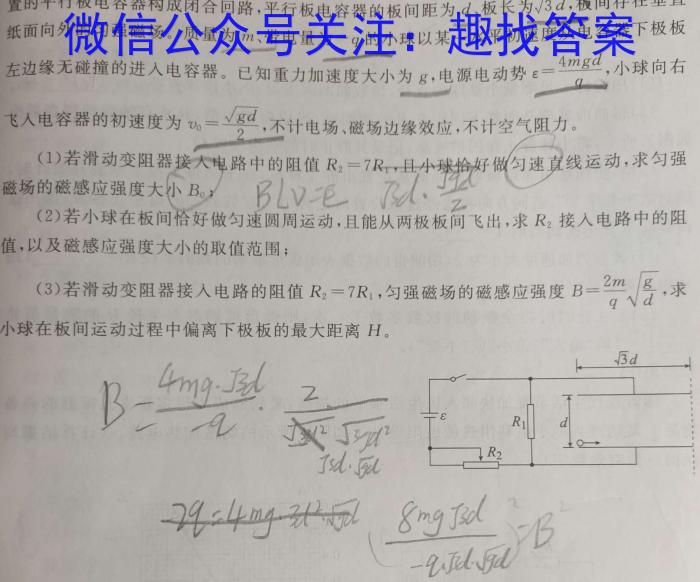 置的平行板电容器构成闭合回路,平行板电容器的板间距为d,板长为√3d,板间存在垂直
纸面向外的匀强磁场。质量为m、带电量为 q的小球以某一水平初速度从电容器下极板
微信公众号关注：趣找答案
左边缘无碰撞的进入电容器。已知重力加速度大小为g,电源电动势ε=4mgd/q,小球向右
飞入电容器的初速度为v₀=√gd/2,不计电场、磁场边缘效应,不计空气阻力。
(1)若滑动变阻器接入电路中的阻值R₂=7R₁,且小球恰好做匀速直线运动,求匀强
磁场的磁感应强度大小B₀;
BLV=E √3d·√gd/2
(2)若小球在板间恰好做匀速圆周运动,且能从两极板间飞出,求R₂接入电路中的阻
值,以及磁感应强度大小的取值范围;
(3)若滑动变阻器接入电路的阻值R₂=7R₁,匀强磁场的磁感应强度B=2m/q √(g/d),求
小球在板间运动过程中偏离下极板的最大距离H。
B=4mg·√3d/-q · 2/
√3d·√gd
2q=4mg·3d²·√gd
(8mg√3d/-q·√3d·√gd)²=B²
√3d
ε
R₁
d
R₂